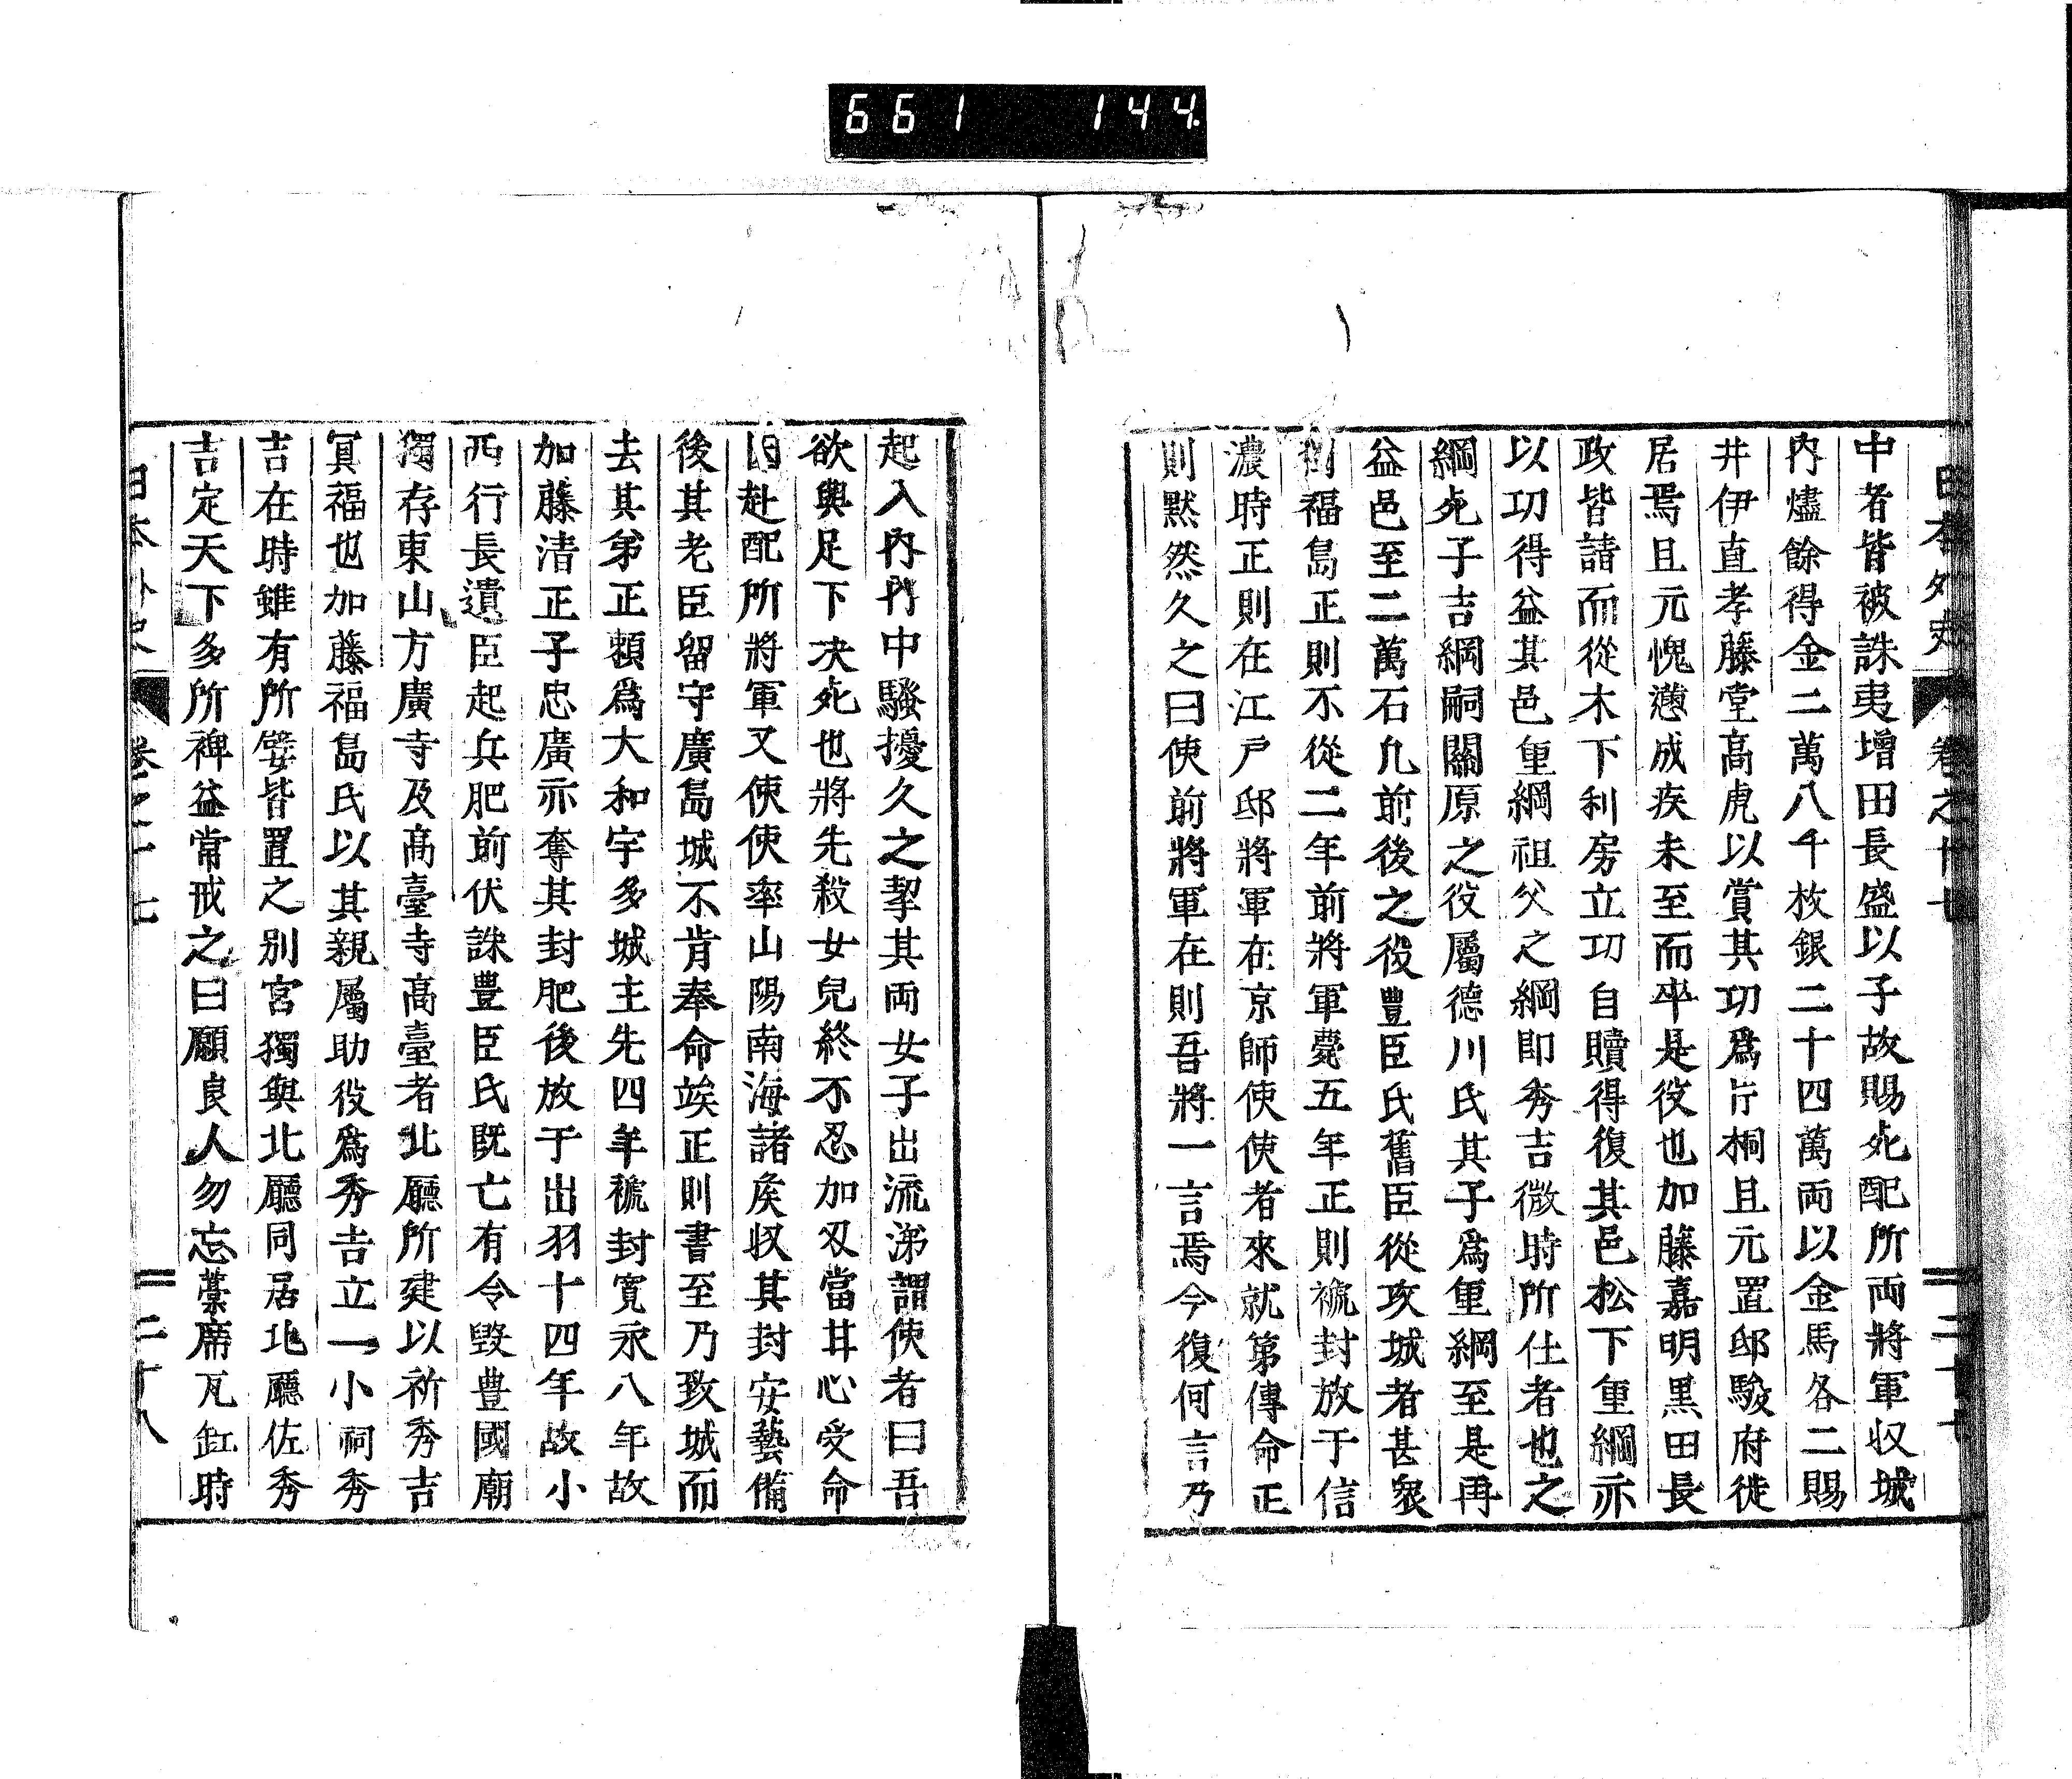 661 144
日本外史 卷之十七 二十七
中者皆被誅夷增田長盛以子故賜死配所両將軍収城
內燼餘得金二萬八千枚銀二十四萬両以金馬各二賜
井伊直孝藤堂高虎以賞其功爲片桐且元置邸駿府徙
居焉且元愧懣成疾未至而卒是役也加藤嘉明黒田長
政皆請而從木下利房立功自贖得復其邑松下重綱亦
以功得益其邑重綱祖父之綱即秀吉微時所仕者也之
綱死子吉綱嗣關原之役屬德川氏其子爲重綱至是再
益邑至二萬石凢前後之役豊臣氏舊臣從攻城者甚衆
獨福島正則不從二年前將軍薨五年正則褫封放于信
濃時正則在江戸邸將軍在京師使使者來就第傳命正
則黙然久之曰使前將軍在則吾將一言焉今復何言乃
起入內內中騷擾久之挈其両女子出流涕謂使者曰吾
欲與足下决死也將先殺女兒終不忍加刄當甘心受命
因赴配所將軍又使使率山陽南海諸矦収其封安藝備
後其老臣留守廣島城不肯奉命竢正則書至乃致城而
去其弟正頼爲大和宇多城主先四年褫封寛永八年故
加藤清正子忠廣亦奪其封肥後放于出羽十四年故小
西行長遺臣起兵肥前伏誅豊臣氏既亡有令毀豊國廟
獨存東山方廣寺及高臺寺高臺者北廳所建以祈秀吉
冥福也加藤福島氏以其親屬助役爲秀吉立一小祠秀
吉在時雖有所嬖皆置之別宮獨與北廳同居北廳佐秀
吉定天下多所裨益常戒之曰願良人勿忘藁席瓦缸時
日本外史 卷之十七 二十八